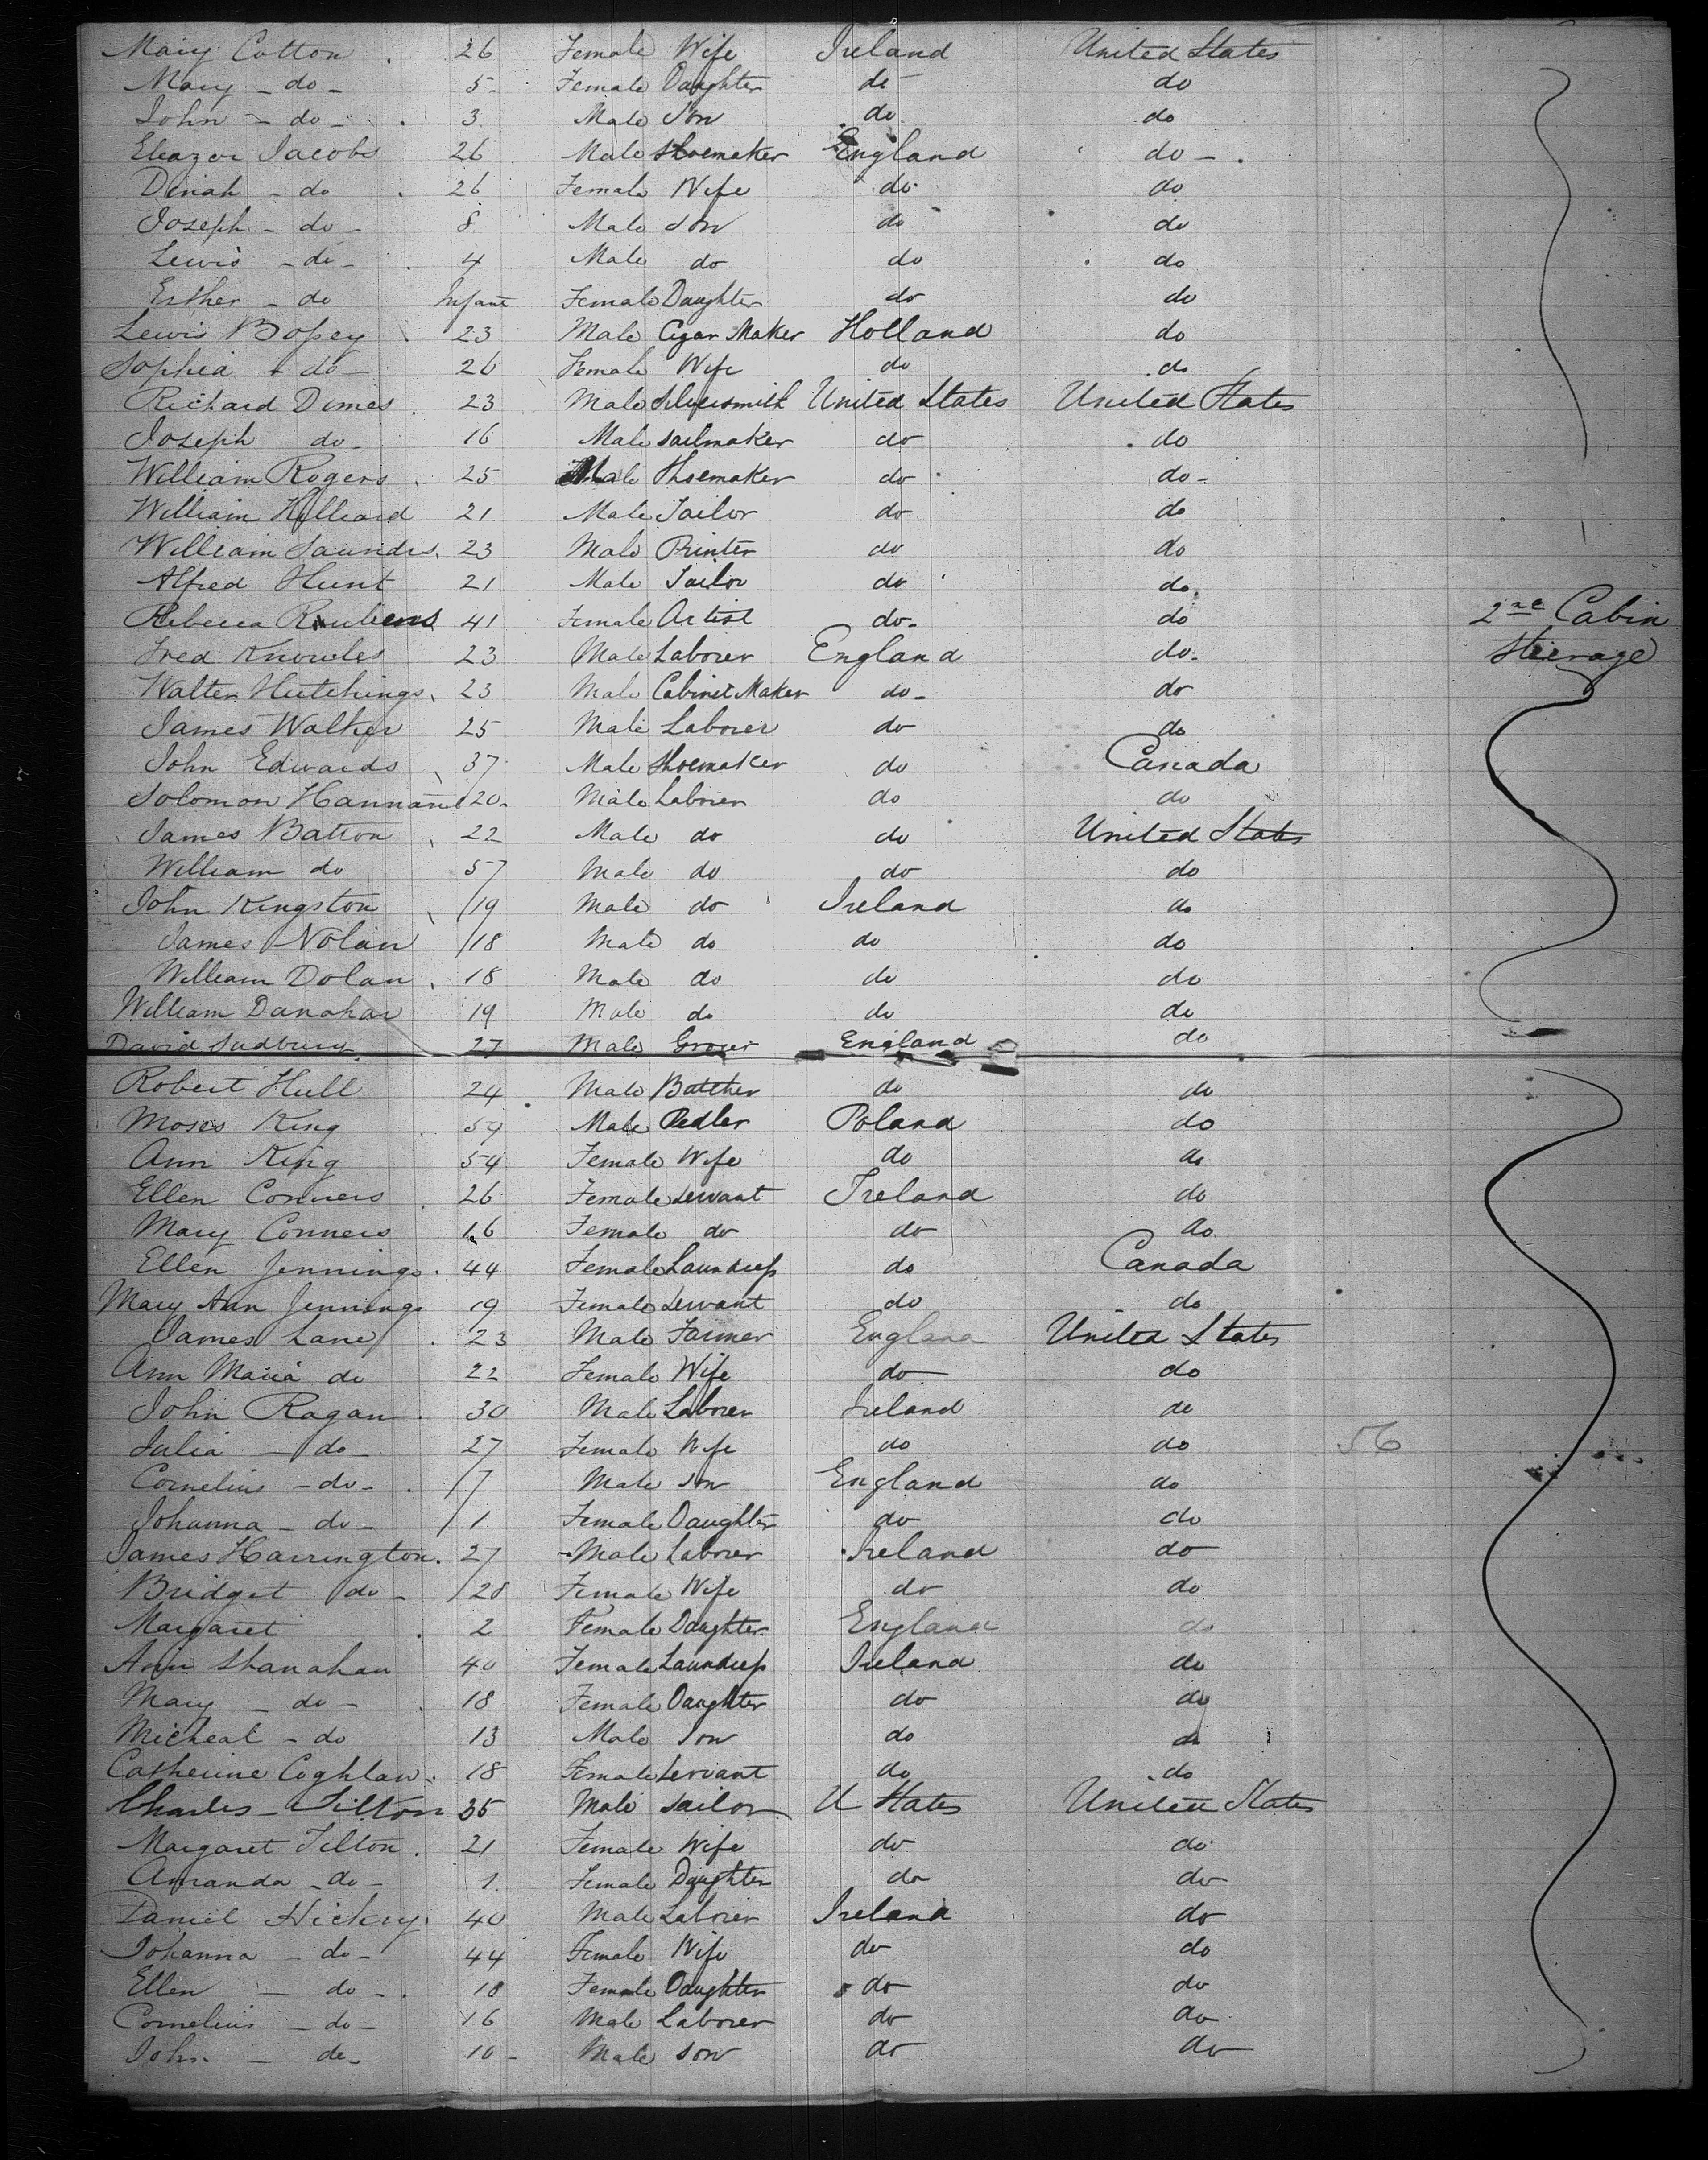 Mary Cotton 26 Female Wife Ireland United States
Mary - do - 5 Female Daughter do do
John - do - 3 Male Son do do
Eleazer Jacobs 26 Male Shoemaker England do -
Dinah - do 26 Female Wife do do
Joseph - do - 8 Male Son do do
Lewis - do - 4 Male do do do
Esther - do Infant Female Daughter do do
Lewis Bossey 23 Male Cigar Maker Holland do
Sophia - do - 26 Female Wife do do
Richard Dimes 23 Male Silversmith United States United States
Joseph do - 16 Male Sailmaker do do
William Rogers 25 Male Shoemaker do do -
William Hilliard 21 Male Tailor do do
William Saunders 23 Male Printer do do
Alfred Hunt 21 Male Tailor do do
Rebecca Reubens 41 Female Artist do - do 2nd Cabin
Fred Knowles 23 Male Laborer England do - Steerage
Walter Hutchings 23 Male Cabinet Maker do - do
James Walker 25 Male Laborer do do
John Edwards 37 Male Shoemaker do Canada
Solomon 20 Male Laborer do do
James Batton 22 Male do do United States
William do 57 Male do do do
John Kingston 19 Male do Ireland do
James Nolan 18 Male do do do
William Dolan 18 Male do do do
William Danahar 19 Male do do do
David Sudbury 27 Male Grocer England do
Robert Hull 24 Male Butcher do do
Moses King 59 Male Pedler Poland do
Ann King 54 Female Wife do do
Ellen Conners 26 Female Servant Ireland do
Mary Conners 16 Female do do do
Ellen Jennings 44 Female Laundress do Canada
Mary Ann Jennings 19 Female Servant do do
James Lane 23 Male Farmer England United States
Ann Maria do 22 Female Wife do do
John Ragan 30 Male Laborer Ireland do
Julia - do - 27 Female Wife do do 56
Cornelius - do - 7 Male Son England do
Johanna - do - 1 Female Daughter do do
James Harrington 27 Male Laborer Ireland do
Bridget do - 28 Female Wife do do
Margaret 2 Female Daughter England do
Ann Shanahan 40 Female Laundress Ireland do
Mary - do - 18 Female Daughter do do
Micheal - do 13 Male Son do do
Catherine Coghlan 18 Female Servant do do
Charles Tilton 35 Male Sailor U States United States
Margaret Tilton 21 Female Wife do do
Amanda - do - 1 Female Daughter do do
Daniel Hickey 40 Male Laborer Ireland do
Johanna - do - 44 Female Wife do do
Ellen - do - 18 Female Daughter do do
Cornelius - do - 16 Male Laborer do do
John - do - 10 - Male Son do do